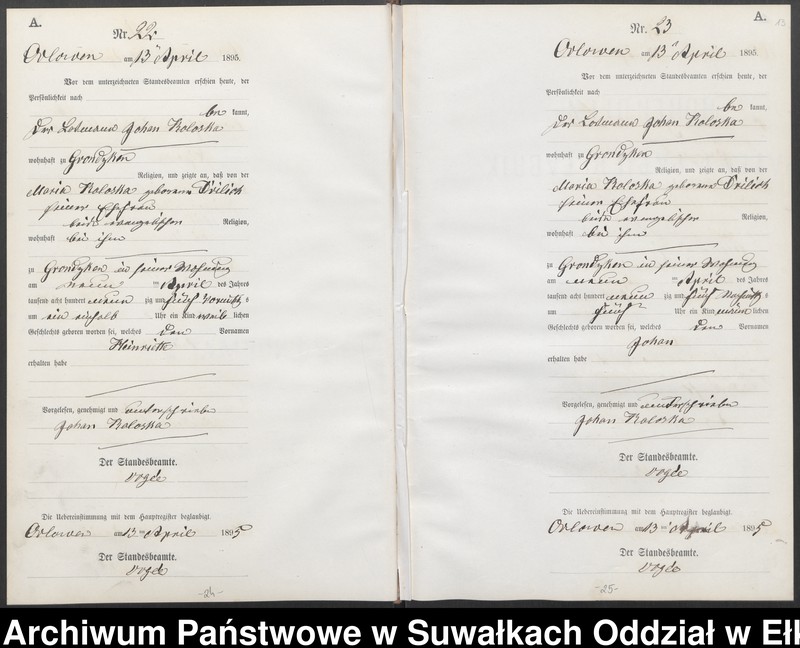 A.
Nr. 22.
Orlowen am 13ten April 1895.
Vor dem unterzeichneten Standesbeamten erschien heute, der
Persönlichkeit nach
be kannt,
der Losmann Johan Koloska
wohnhaft zu Grondzken
Religion, und zeigte an, daß von der
Maria Koloska geborene
seiner Ehefrau
beide evangelischer Religion,
wohnhaft bei ihm
zu Grondzken in seiner Wohnung
am neun ten April des Jahres
tausend acht hundert neun zig und fünf Vormittags
um ein einhalb Uhr ein Kind weib lichen
Geschlechts geboren worden sei, welches den Vornamen
erhalten habe
Vorgelesen, genehmigt und unterschrieben
Johan Koloska
Der Standesbeamte.
Die Uebereinstimmung mit dem Hauptregister beglaubigt.
Orlowen am 13ten April 1895
Der Standesbeamte.
-24-
A.
13
Nr. 23
Orlowen am 13ten April 1895.
Vor dem unterzeichneten Standesbeamten erschien heute, der
Persönlichkeit nach
be kannt,
der Losmann Johan Koloska
wohnhaft zu Grondzken
Religion, und zeigte an, daß von der
Maria Koloska geborene
seiner Ehefrau
beide evangelischer Religion,
wohnhaft bei ihm
zu Grondzken in seiner Wohnung
am neun ten April des Jahres
tausend acht hundert neun zig und fünf Vormittags
um fünf Uhr ein Kind männ lichen
Geschlechts geboren worden sei, welches den Vornamen
Johan
erhalten habe
Vorgelesen, genehmigt und unterschrieben
Johan Koloska
Der Standesbeamte.
Die Uebereinstimmung mit dem Hauptregister beglaubigt.
Orlowen am 13ten April 1895
Der Standesbeamte.
-25-
Archiwum Państwowe w Suwałkach Oddział w Ełk